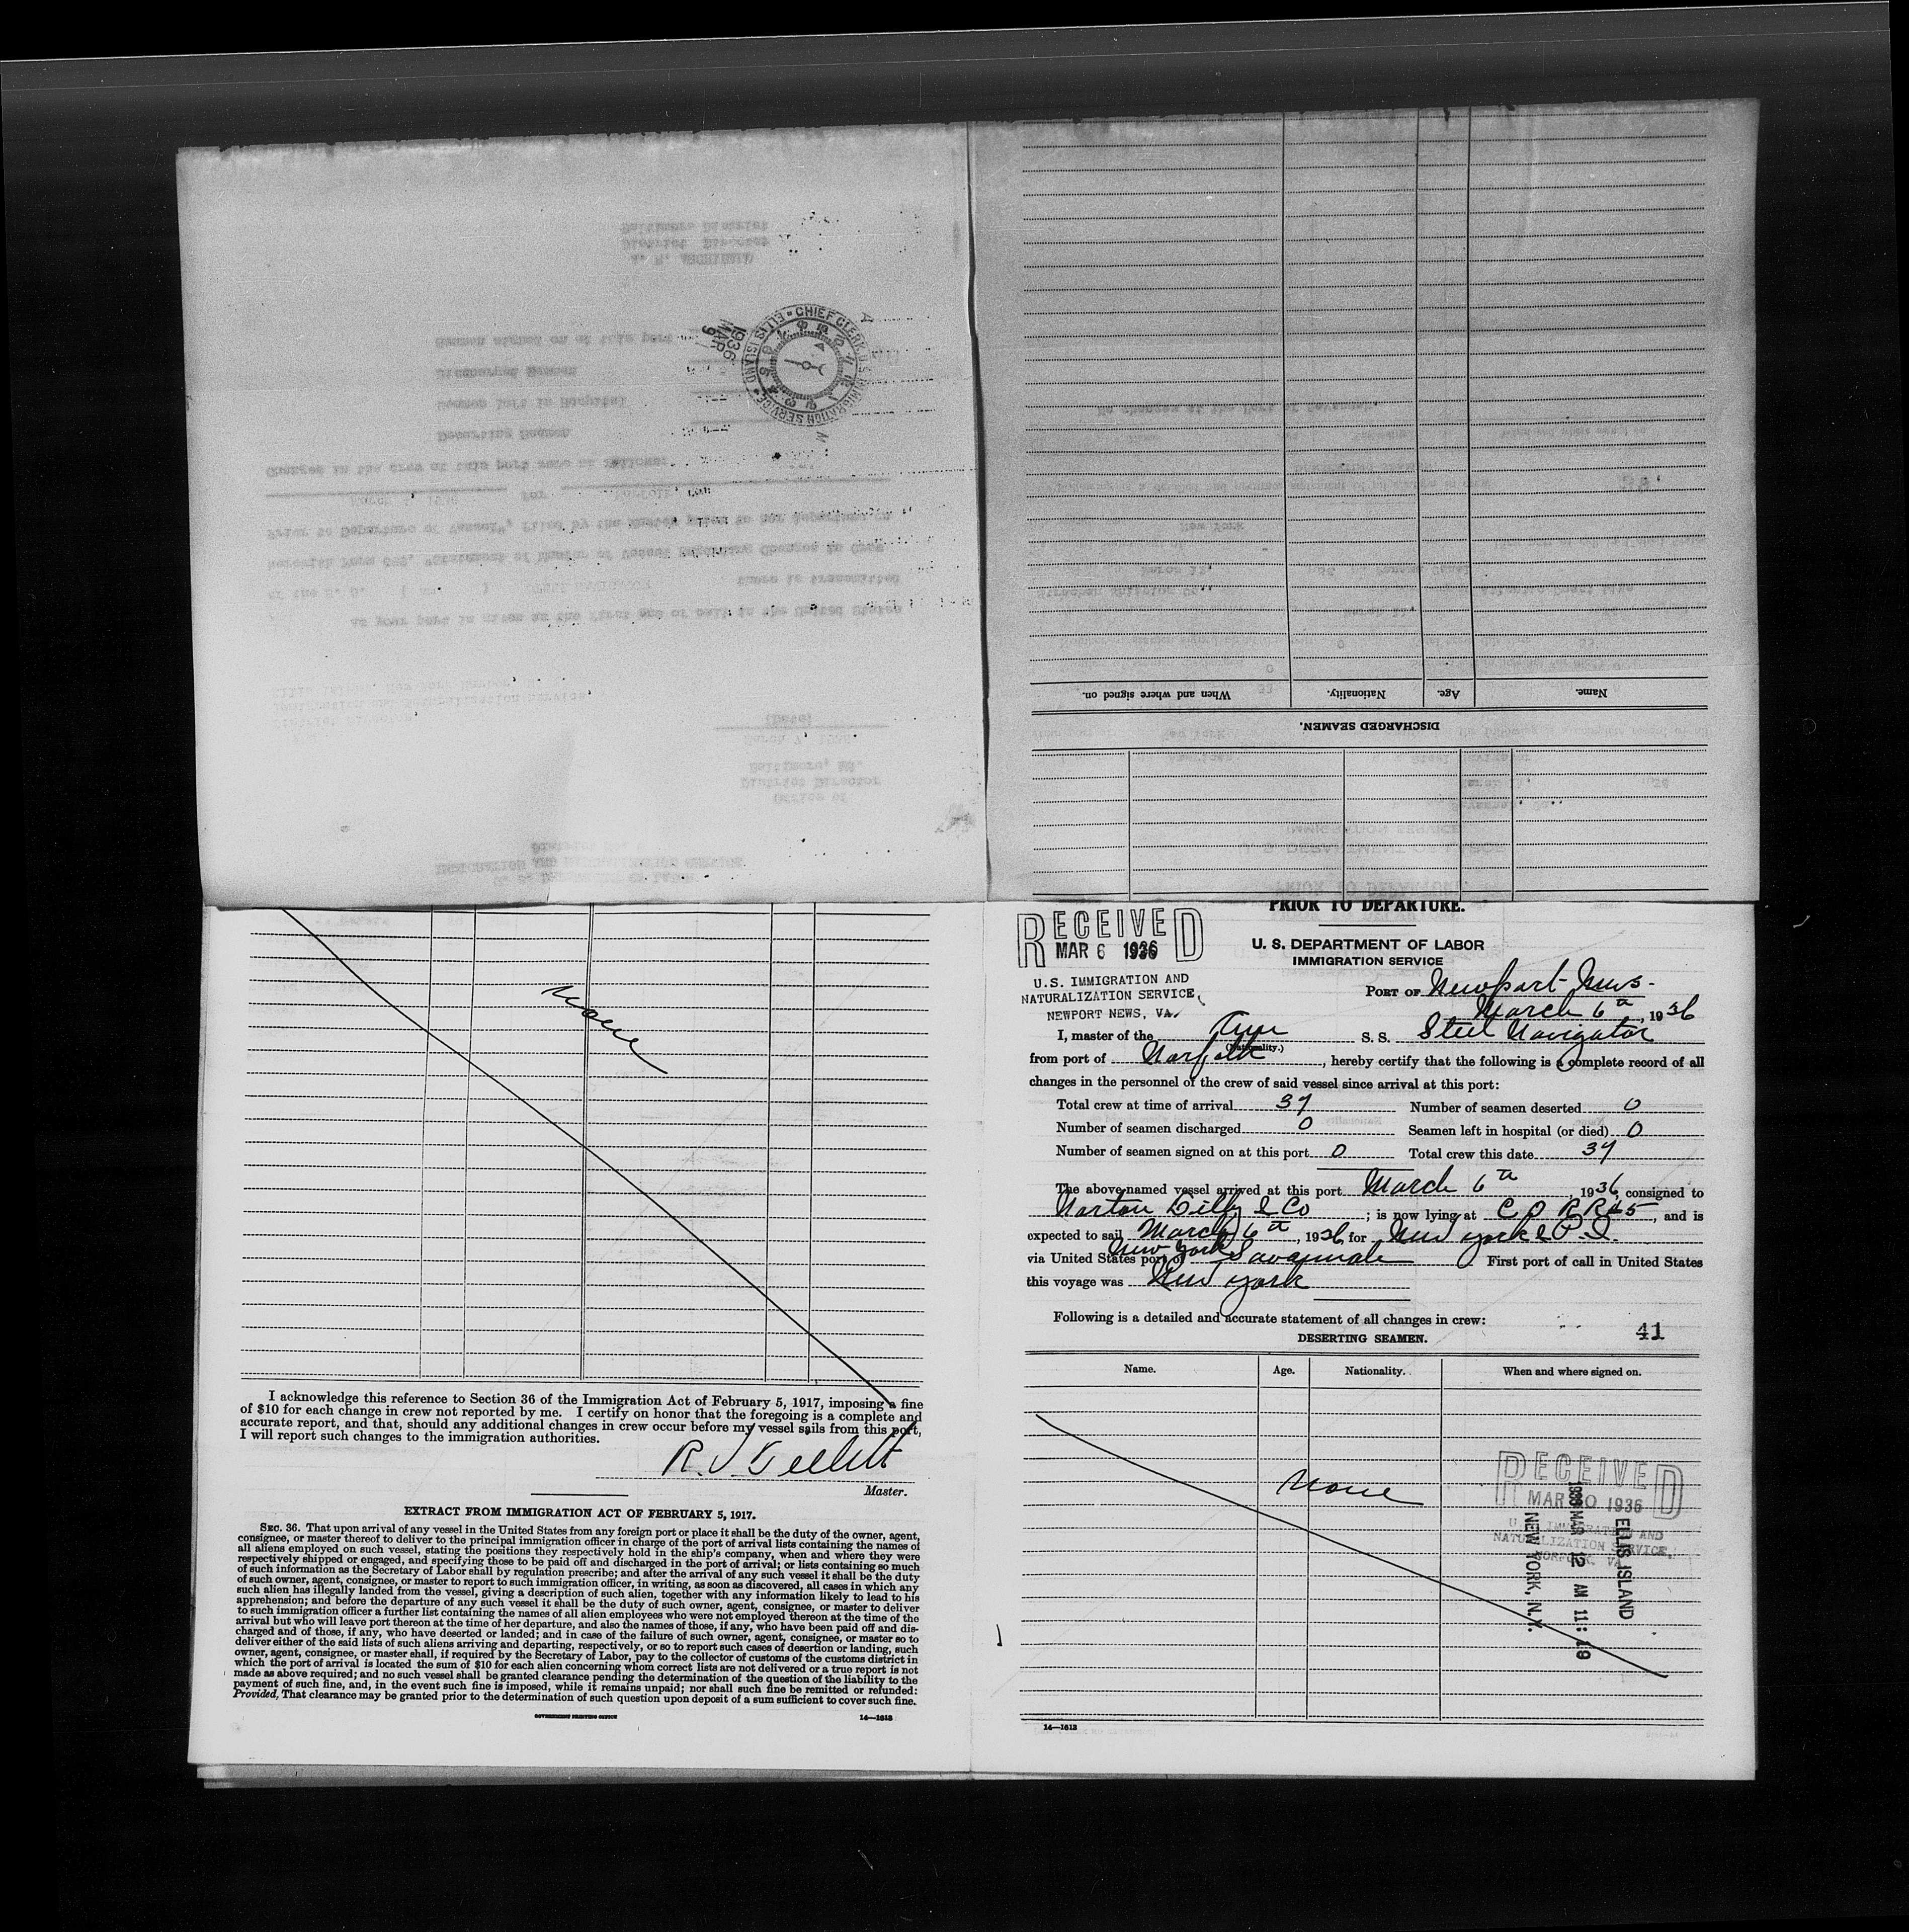 CHIEF CLERK U.S. IMMIGRATION SERVICE • ELLIS ISLAND •
1936
MAR
9
Name.
Age.
Nationality.
When and where signed on.
DISCHARGED SEAMEN.
None
I acknowledge this reference to Section 36 of the Immigration Act of February 5, 1917, imposing a fine
of $10 for each change in crew not reported by me. I certify on honor that the foregoing is a complete and
accurate report, and that, should any additional changes in crew occur before my vessel sails from this port,
I will report such changes to the immigration authorities.
Master.
EXTRACT FROM IMMIGRATION ACT OF FEBRUARY 5, 1917.
SEC. 36. That upon arrival of any vessel in the United States from any foreign port or place it shall be the duty of the owner, agent,
consignee, or master thereof to deliver to the principal immigration officer in charge of the port of arrival lists containing the names of
all aliens employed on such vessel, stating the positions they respectively hold in the ship's company, when and where they were
respectively shipped or engaged, and specifying those to be paid off and discharged in the port of arrival; or lists containing so much
of such information as the Secretary of Labor shall by regulation prescribe; and after the arrival of any such vessel it shall be the duty
of such owner, agent, consignee, or master to report to such immigration officer, in writing, as soon as discovered, all cases in which any
such alien has illegally landed from the vessel, giving a description of such alien, together with any information likely to lead to his
apprehension; and before the departure of any such vessel it shall be the duty of such owner, agent, consignee, or master to deliver
to such immigration officer a further list containing the names of all alien employees who were not employed thereon at the time of the
arrival but who will leave port thereon at the time of her departure, and also the names of those, if any, who have been paid off and dis-
charged and of those, if any, who have deserted or landed; and in case of the failure of such owner, agent, consignee, or master so to
deliver either of the said lists of such aliens arriving and departing, respectively, or so to report such cases of desertion or landing, such
owner, agent, consignee, or master shall, if required by the Secretary of Labor, pay to the collector of customs of the customs district in
which the port of arrival is located the sum of $10 for each alien concerning whom correct lists are not delivered or a true report is not
made as above required; and no such vessel shall be granted clearance pending the determination of the question of the liability to the
payment of such fine, and, in the event such fine is imposed, while it remains unpaid; nor shall such fine be remitted or refunded:
Provided, That clearance may be granted prior to the determination of such question upon deposit of a sum sufficient to cover such fine.
GOVERNMENT PRINTING OFFICE 14—1613
PRIOR TO DEPARTURE.
RECEIVED
MAR 6 1936
U.S. IMMIGRATION AND
NATURALIZATION SERVICE,
NEWPORT NEWS, VA.
U. S. DEPARTMENT OF LABOR
IMMIGRATION SERVICE
PORT OF Newport News.
March 6th, 1936
I, master of the Am (Nationality.) S. S. Steel Navigator
from port of Norfolk, hereby certify that the following is a complete record of all
changes in the personnel of the crew of said vessel since arrival at this port:
Total crew at time of arrival 37 Number of seamen deserted 0
Number of seamen discharged 0 Seamen left in hospital (or died) 0
Number of seamen signed on at this port 0 Total crew this date 37
The above-named vessel arrived at this port March 6th 1936, consigned to
Norton Lilly & Co; is now lying at C O R R #5, and is
expected to sail March 6th, 1936 for New York & P.I.
via United States port of New York Savannah First port of call in United States
this voyage was New York
Following is a detailed and accurate statement of all changes in crew:
41
DESERTING SEAMEN.
Name. Age. Nationality. When and where signed on.
None
RECEIVED
MAR 10 1936
U.S. IMMIGRATION AND
NATURALIZATION SERVICE,
NORFOLK, VA.
ELLIS ISLAND
1936 MAR 12 AM 11:19
NEW YORK, N.Y.
14—1613